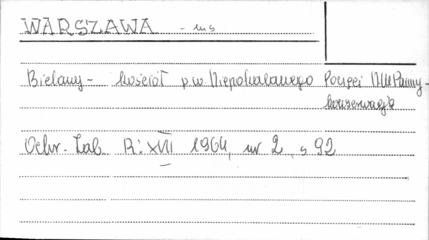 WARSZAWA - ms
Bielany - kościół p.w. Niepokalanego Poczęcia NM Panny -
konserwacja
Ochr. Zab. R: XVII 1964, nr 2, s 92